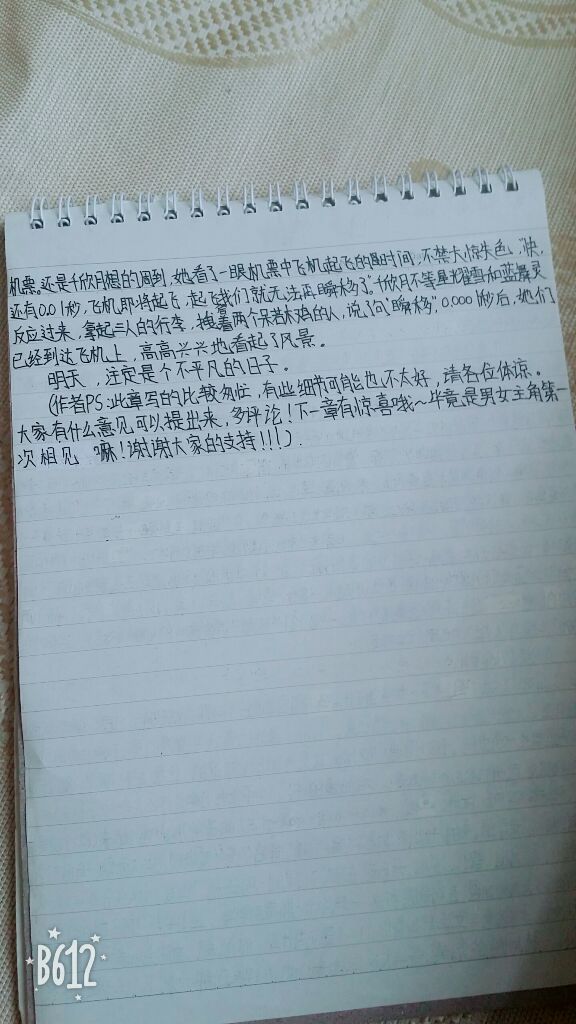 机票。还是千欣月想的周到,她看了一眼机票中飞机起飞的时间,不禁大惊失色,"快,
还有0.01秒,飞机即将起飞,起飞我们就无法再瞬移了。"千欣月不等星耀雪和蓝舞灵
反应过来,拿起三人的行李,拽着两个呆若木鸡的人,说了句"瞬移",0.0001秒后,她们
已经到达飞机上,高高兴兴地看起了风景。
明天,注定是个不平凡的日子。
(作者PS:此章写的比较匆忙,有些细节可能也不太好,请各位体谅。
大家有什么意见可以提出来,多评论!下一章有惊喜哦~毕竟是男女主角第一
次相见 嘛!谢谢大家的支持!!!)
B612